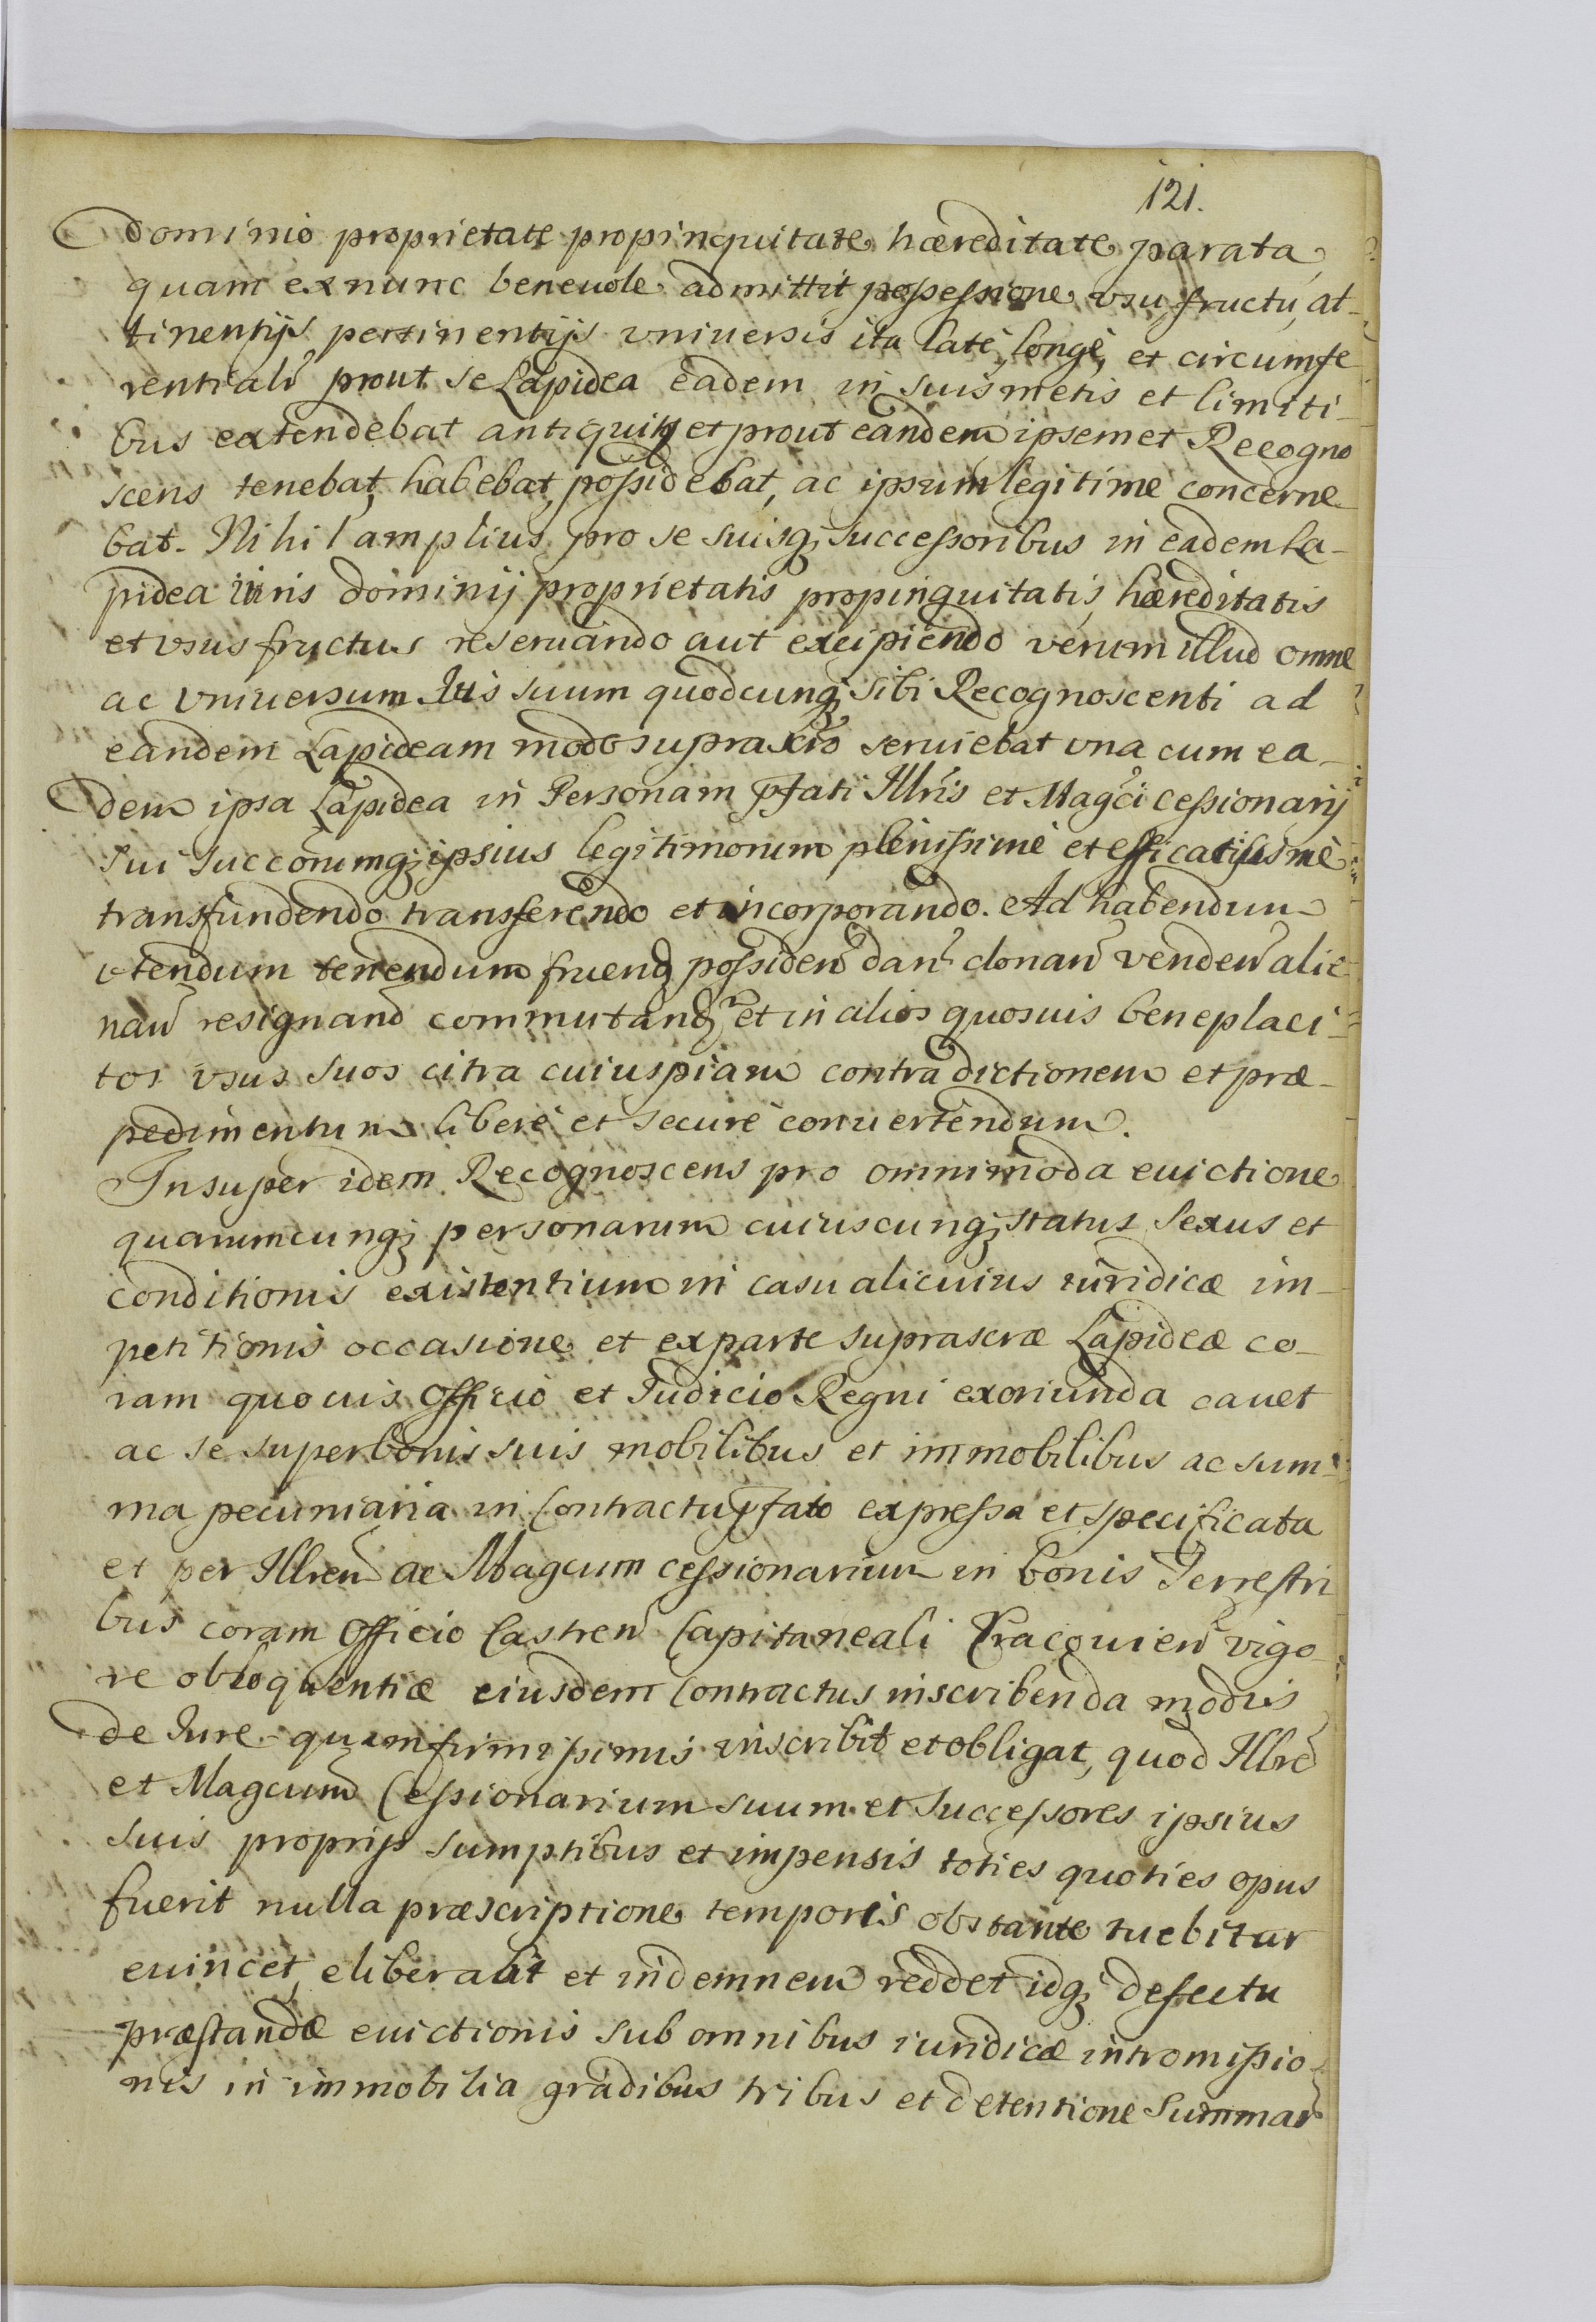 121.
dominio proprietate propinquitate hæreditate parata,
quam ex nunc beneuole admittit possessione vsu fructu, at-
tinentijs pertinentijs vniuersis ita latè, longè, et circumfe
rentialr prout se Lapidea eadem in suis metis et limiti-
bus extendebat antiquitq et prout eandem ipsemet Recogno
scens tenebat, habebat, possidebat, ac ipsum legitime concerne-
bat. Nihil amplius pro se suisq; successoribus in eadem La-
pidea iuris dominij proprietatis propinquitatis, hæreditatis
et vsus fructus reseruando aut excipiendo verum illud omne
ac vniuersum Ius suum quodcunq; sibi Recognoscenti ad
eandem Lapideam modo suprascro seruiebat vna cum ea-
dem ipsa Lapidea in Personam pfati Illris et Magci cessionarij
sui succorumq; ipsius legitimorum plenissimè et efficacissimè
transfundendo transferendo et incorporando. Ad habendum
vtendum tenendum fruend possiden dan donan venden alie
nan resignand commutand et in alios quosuis beneplaci-
tos vsus suos citra cuiuspiam contradictionem et præ-
pedimentum liberè et securè conuertendum.
Insuper idem Recognoscens pro omnimoda euictione
quarumcunq; personarum cuiuscunq; status, sexus et
conditionis existentium in casu alicuius iuridicæ im-
petitionis occasione et ex parte suprascræ Lapideæ co-
ram quouis Officio et Iudicio Regni exoriunda cauet
ac se super bonis suis mobilibus et immobilibus ac sum-
ma pecuniaria in Contractu pfato expressa et specificata
et per Illrem ac Magcum cessionarium in bonis Terrestri
bus coram Officio Castren Capitaneali Cracouien vigo-
re obloquentiæ eiusdem Contractus inscribenda modis
de Iure quam firmissimis inscribit et obligat, quod Illrem
et Magcum Cessionarium suum et successores ipsius
suis proprijs sumptibus et impensis toties quoties opus
fuerit nulla præscriptione temporis obstante tuebitur
euincet, eliberabit et indemnem reddet idq; defectu
præstandæ euictionis sub omnibus iuridicæ intromissio-
nis in immobilia gradibus tribus et detentione Summar